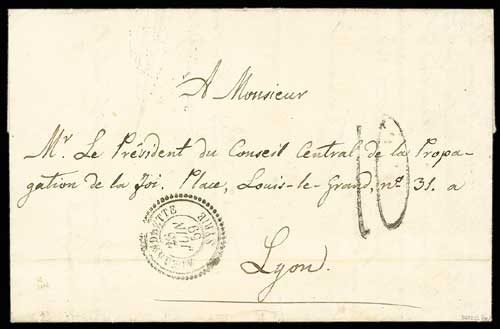 A Monsieur
Mr. Le Président du Conseil Central de la Propa-
gation de la foi. Place, Louis-le-Grand, no. 31. a
10
ALEXANDRETTE SYRIE
JUIN
59
Lyon.